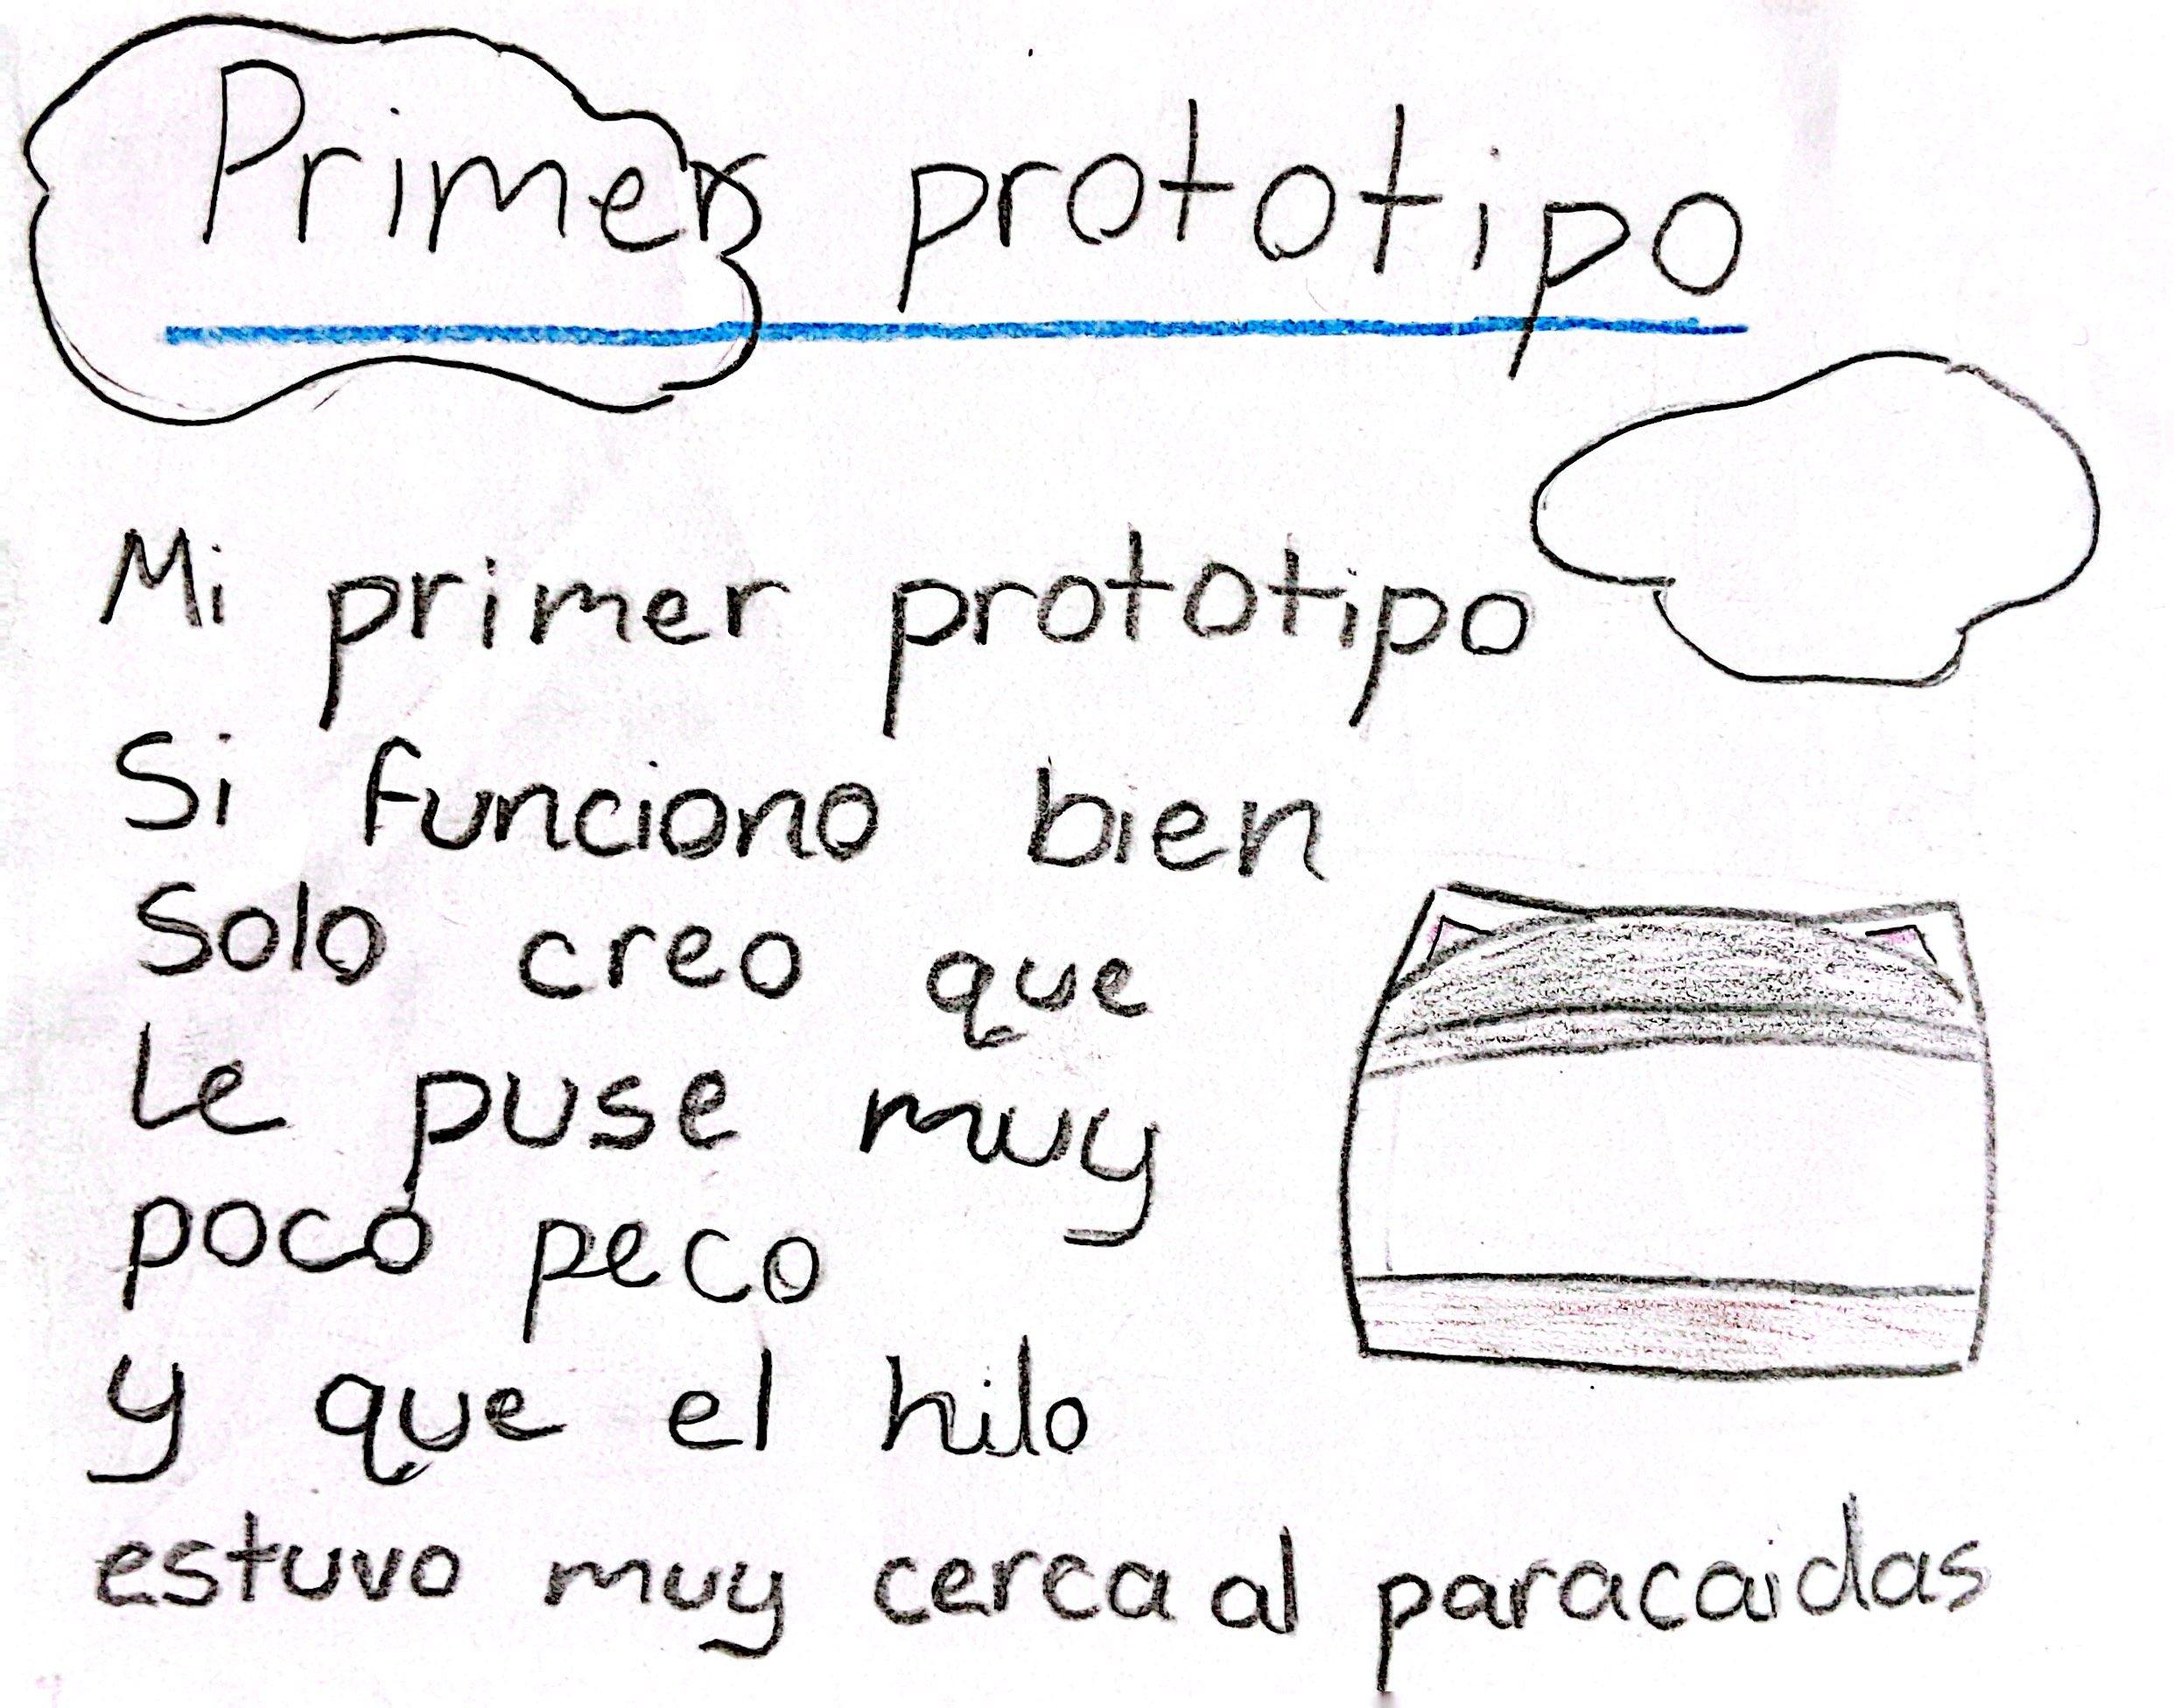 Primer prototipo
Mi primer prototipo
Si funciono bien
Solo creo que
Le puse muy
poco peco
y que el hilo
estuvo muy cerca al paracaidas